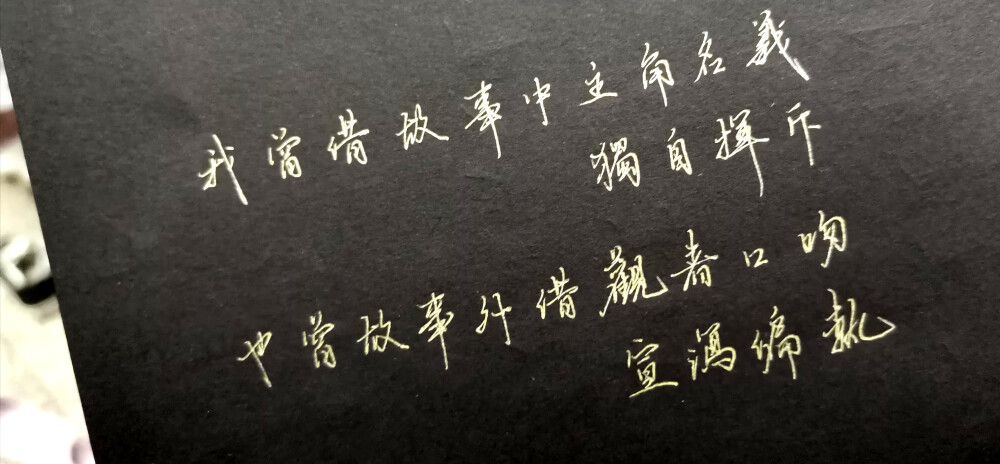 我曾借故事中主角名義
獨自揮斥
也曾故事外借觀者口吻
宣瀉偏執